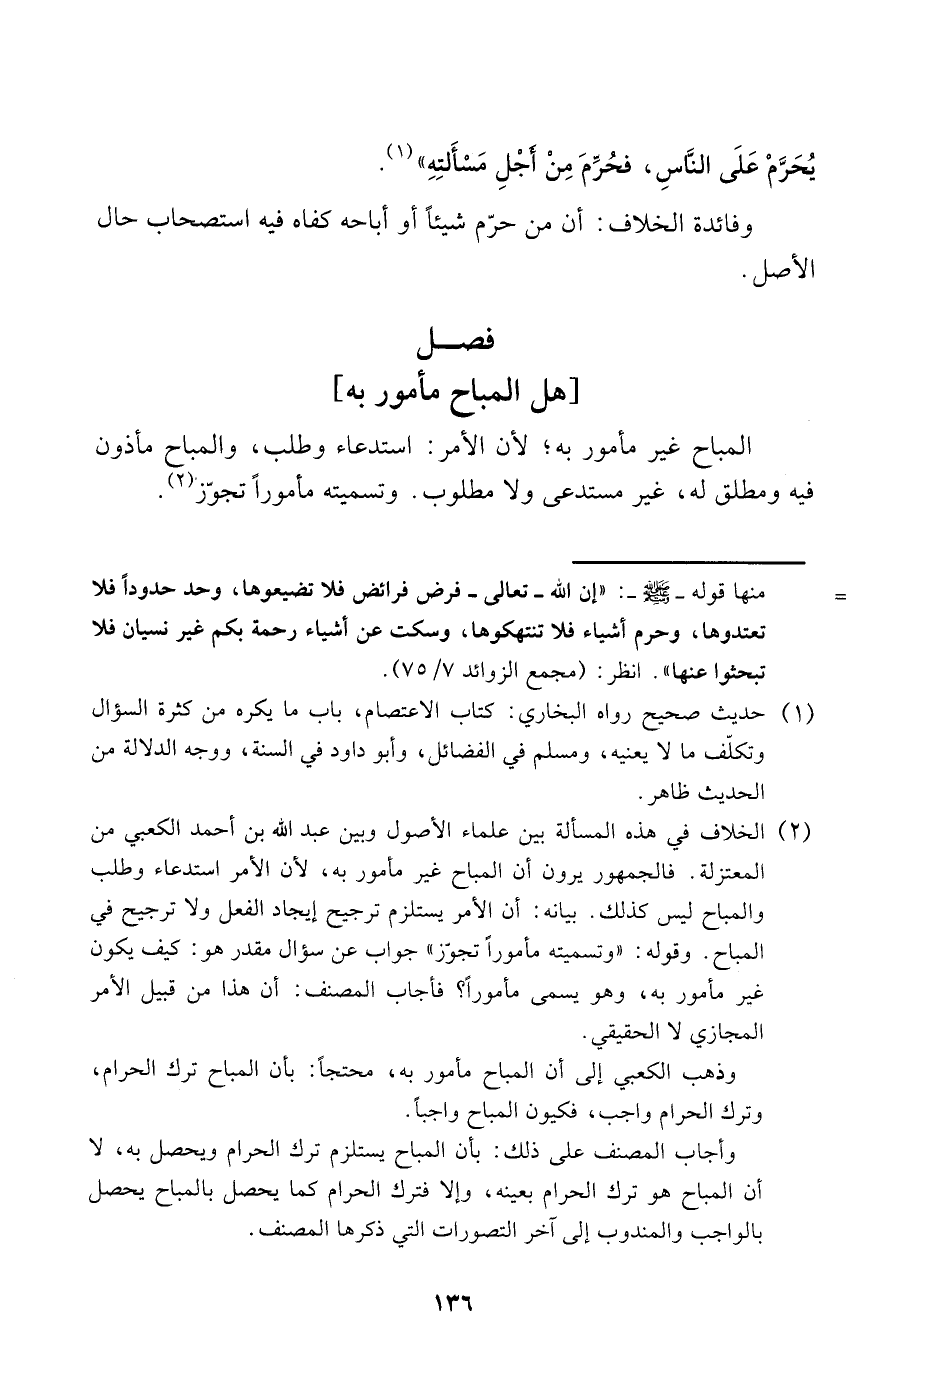 يُحَرَّمْ عَلَى النَّاسِ، فحُرِّمَ مِنْ أَجْلِ مَسْأَلَتِهِ»(١).
وفائدة الخلاف: أن من حرّم شيئاً أو أباحه كفاه فيه استصحاب حال
الأصل.
فصـــل
[هل المباح مأمور به]
المباح غير مأمور به؛ لأن الأمر: استدعاء وطلب، والمباح مأذون
فيه ومطلق له، غير مستدعى ولا مطلوب. وتسميته مأموراً تجوّز(٢).
= منها قوله ـ ﷺ ـ: «إن الله ـ تعالى ـ فرض فرائض فلا تضيعوها، وحد حدوداً فلا
تعتدوها، وحرم أشياء فلا تنتهكوها، وسكت عن أشياء رحمة بكم غير نسيان فلا
تبحثوا عنها». انظر: (مجمع الزوائد ٧/ ٧٥).
(١) حديث صحيح رواه البخاري: كتاب الاعتصام، باب ما يكره من كثرة السؤال
وتكلّف ما لا يعنيه، ومسلم في الفضائل، وأبو داود في السنة، ووجه الدلالة من
الحديث ظاهر.
(٢) الخلاف في هذه المسألة بين علماء الأصول وبين عبد الله بن أحمد الكعبي من
المعتزلة. فالجمهور يرون أن المباح غير مأمور به، لأن الأمر استدعاء وطلب
والمباح ليس كذلك. بيانه: أن الأمر يستلزم ترجيح إيجاد الفعل ولا ترجيح في
المباح. وقوله: «وتسميته مأموراً تجوّز» جواب عن سؤال مقدر هو: كيف يكون
غير مأمور به، وهو يسمى مأموراً؟ فأجاب المصنف: أن هذا من قبيل الأمر
المجازي لا الحقيقي.
وذهب الكعبي إلى أن المباح مأمور به، محتجاً: بأن المباح ترك الحرام،
وترك الحرام واجب، فكيون المباح واجباً.
وأجاب المصنف على ذلك: بأن المباح يستلزم ترك الحرام ويحصل به، لا
أن المباح هو ترك الحرام بعينه، وإلا فترك الحرام كما يحصل بالمباح يحصل
بالواجب والمندوب إلى آخر التصورات التي ذكرها المصنف.
١٣٦